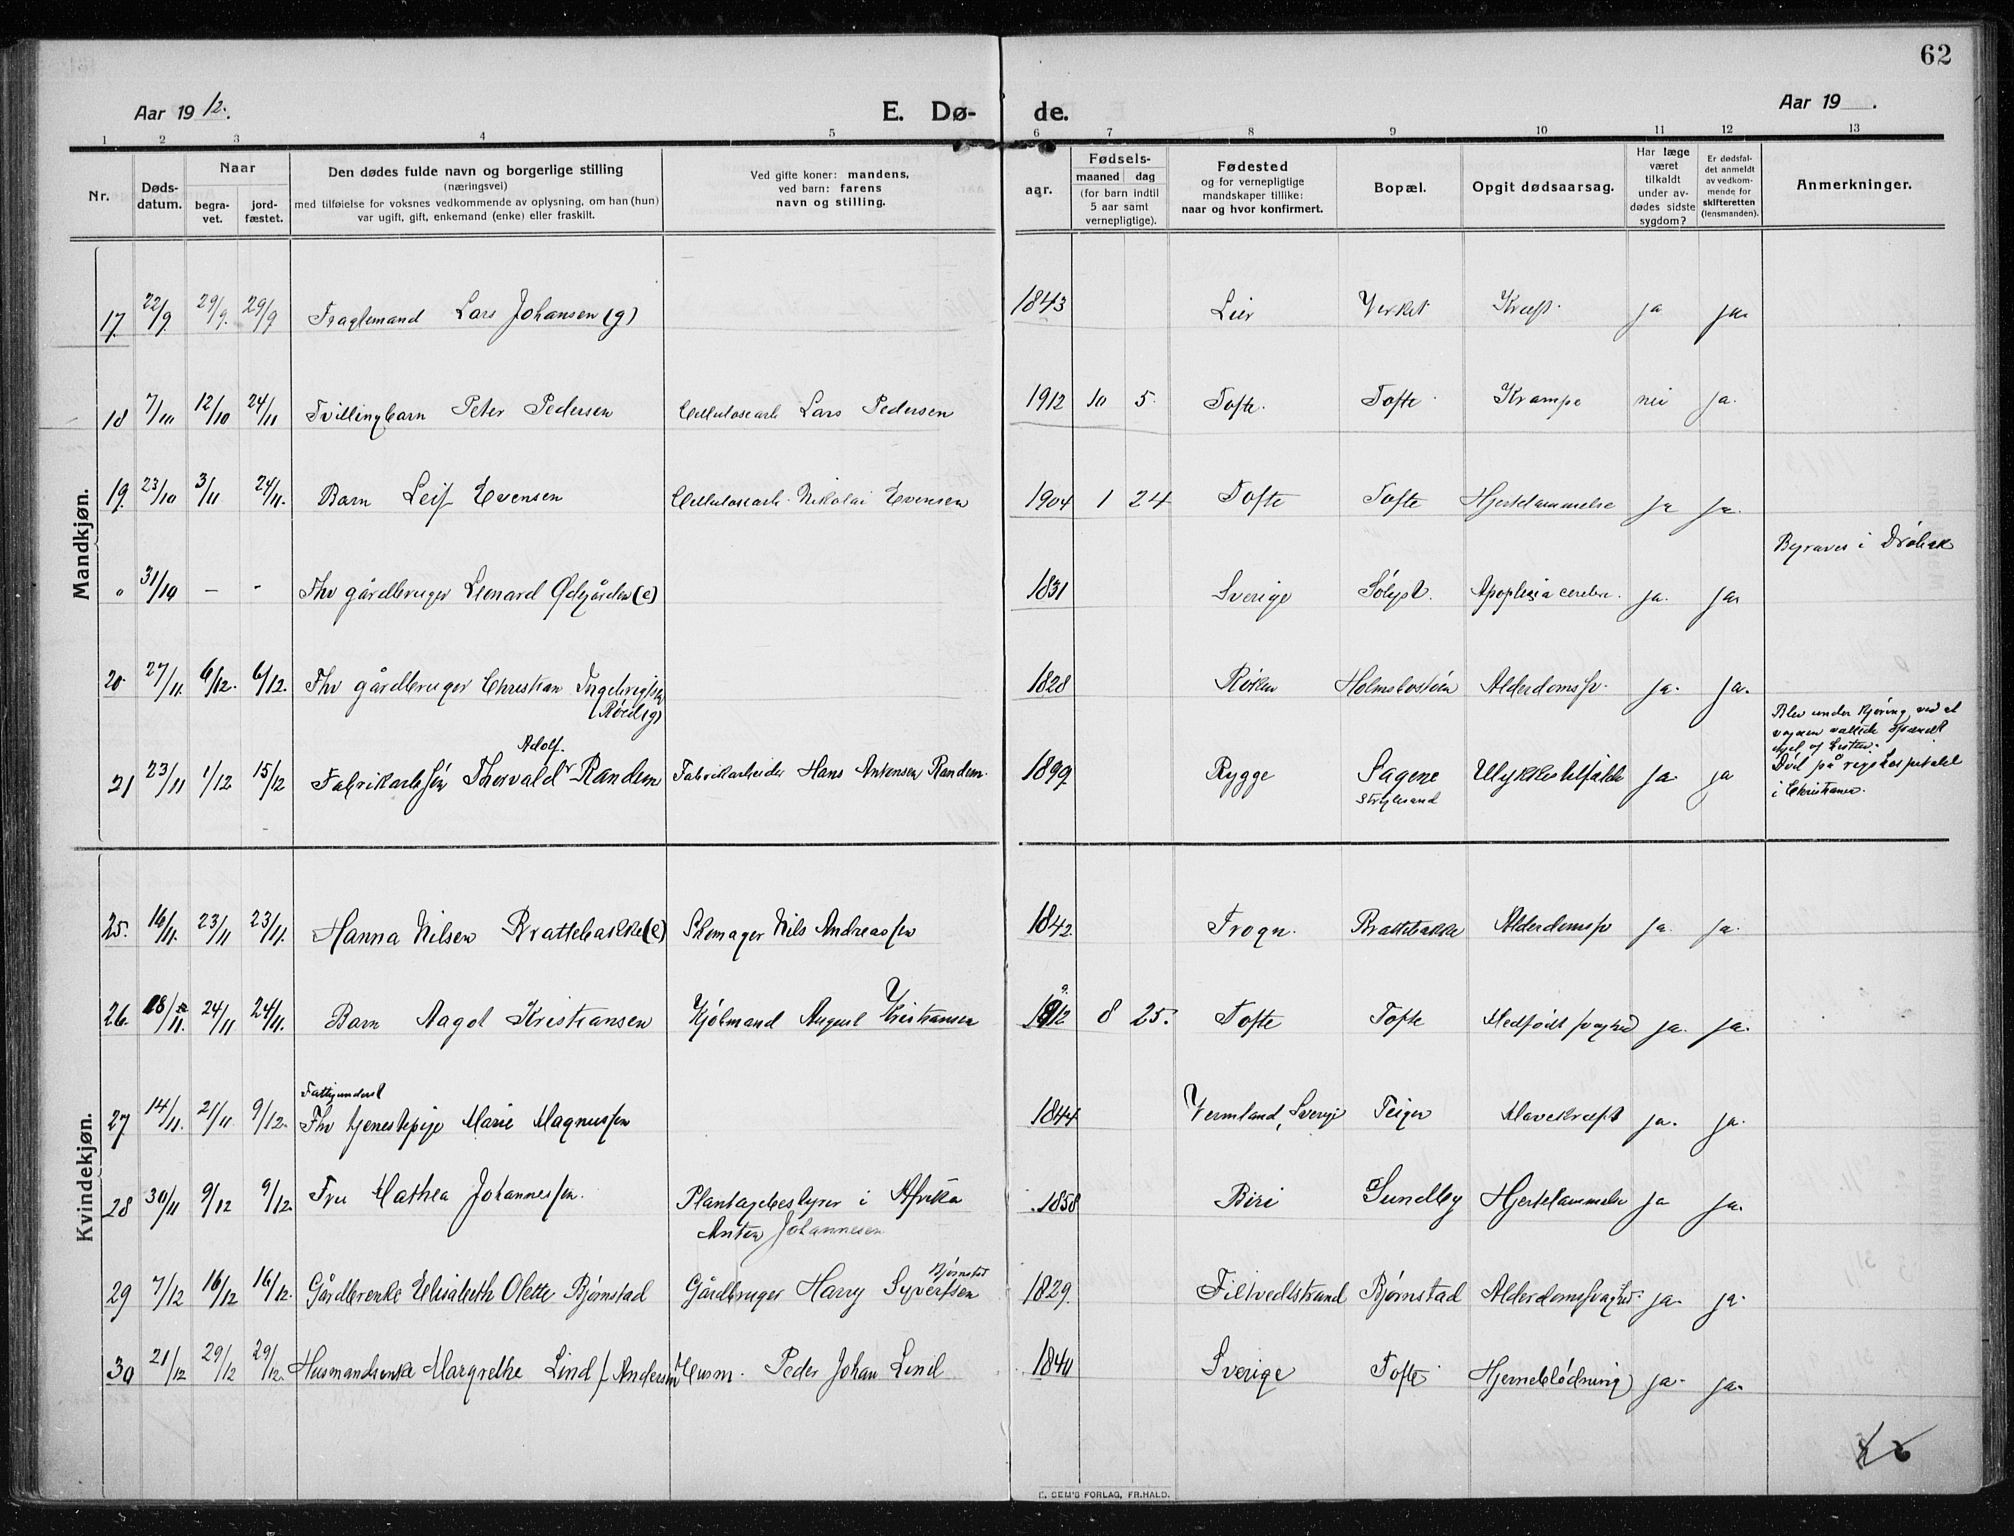 62
Aar 1912.
E. Dø- de.
Aar 19 .
1 2 3 4 5 6 7 8 9 10 11 12 13
Nr.
Døds-
datum.
Naar
begra-
vet.
jord-
fæstet.
Den dødes fulde navn og borgerlige stilling
(næringsvei)
med tilføielse for voksnes vedkommende av oplysning, om han (hun)
var ugift, gift, enkemand (enke) eller fraskilt.
Ved gifte koner: mandens,
ved barn: farens
navn og stilling.
aar.
Fødsels-
maaned dag
(for barn indtil
5 aar samt
vernepligtige).
Fødested
og for vernepligtige
mandskaper tillike:
naar og hvor konfirmert.
Bopæl.
Opgit dødsaarsag.
Har læge
været
tilkaldt
under av-
dødes sidste
sygdom?
Er dødsfal-
det anmeldt
av vedkom-
mende for
skifteretten
(lensmanden).
Anmerkninger.
Mandkjøn.
17. 22/9 29/9. 29/9 Lars Johansen (g) 1843 Lier Verket Kræft. ja ja
18 7/10 12/10 24/11 Tvillingbarn Peter Pedersen Cellulosearb Lars Pedersen 1912 10 5. Tofte. Tofte Krampe nei ja.
19. 23/10 3/11 24/11. Barn Leif Evensen Cellulosearb. Nikolai Evensen 1904 1 24 Tofte Tofte Hjertelammelse ja ja.
Begraves i Drøbak
" 31/10 — - Fhv gårdbruger Leonard Ødegården (e) 1831 Sverige Solyst. Apoplexia cerebri. ja. ja
20. 27/11. 6/12. 6/12. Fhv gårdbruger Christian Ingebrigtsen
(Røed (g) 1828 Røken Holmsbostøen Alderdomssv. ja. ja.
Blev under kjøring ved at
vognen væltede
Død på rigshospitalet
i Christiania.
21 23/11 1/12 15/12 Fabrikarb søn Thorvald Adolf. Randem Fabrikarbeider Hans Antensen Randem. 1899 Rygge Sagene Ulykkestilfælde ja. ja
Kvindekjøn.
25. 16/11. 23/11 23/11. Hanna Nilsen Brattebakke (e) Skomager Nils Andreassen 1842. Frogn. Brattebakke Alderdomssv ja. ja.
26. 18/11. 24/11 24/11. Barn Aagot Kristiansen August Kristiansen 1912 8 25. Tofte Tofte Medfødt svaghed ja. ja.
Fattigunderst
27 14/11. 21/11 9/12. Fhv tjenestepige Marie Magnussen 1844 Vermland, Sverige Teigen Mavekræft ja. ja.
28 30/11 9/12 9/12. Fru Mathea Johannessen. Plantagebestyrer i Afrika
Anton Johannesen 1858 Biri Sundby Hjertelammelse ja ja.
29 7/12 16/12 16/12. Gårdbrenke Elisabeth Olette Bjørnstad Gårdbruger Harry Syvertsen Bjørnstad 1829. Filtvedtstrand Bjørnstad Alderdomssvaghed. ja. ja.
30 21/12 29/12 29/12. Husmandsenke Margrethe Lind f Andersen Husm. Peder Johan Lind 1840 Sverige Tofte Hjerneblødning ja. ja.
E. SEM'S FORLAG, FR.HALD.